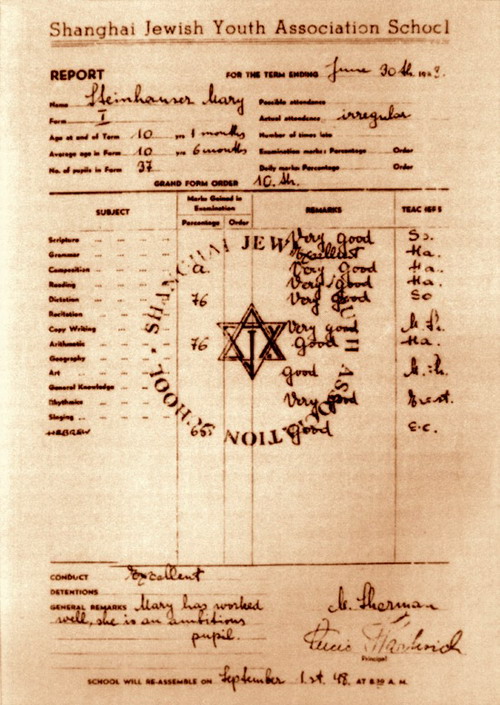 Shanghai Jewish Youth Association School
REPORT FOR THE TERM ENDING June 30th. 19
Name Steinhauser Mary Possible attendance
Form I Actual attendance irregular
Age at end of Term 10 yrs 1 months Number of times late
Average age in Form 10 yrs 6 months Examination marks: Percentage Order
No. of pupils in Form 37 Daily marks: Percentage Order
GRAND FORM ORDER 10.th.
SUBJECT Marks Gained in Examination REMARKS TEACHERS
Percentage Order
Scripture Very good So.
Grammar Excellent Ha.
Composition a. Very good Ha.
Reading Very good Ha.
Dictation 76 Very good So
Recitation
Copy Writing Very good M. Sh.
Arithmetic 76 Good Ha.
Geography
Art Good M. Sh.
General Knowledge
Rhythmics Very good
Singing
HEBREW 65 Good E.C.
SHANGHAI JEWISH YOUTH ASSOCIATION SCHOOL
CONDUCT Excellent
DETENTIONS
GENERAL REMARKS Mary has worked
well, she is an ambitious
pupil.
M. Sherman
Principal
SCHOOL WILL RE-ASSEMBLE ON September 1.st. 48. AT 8.30 A. M.